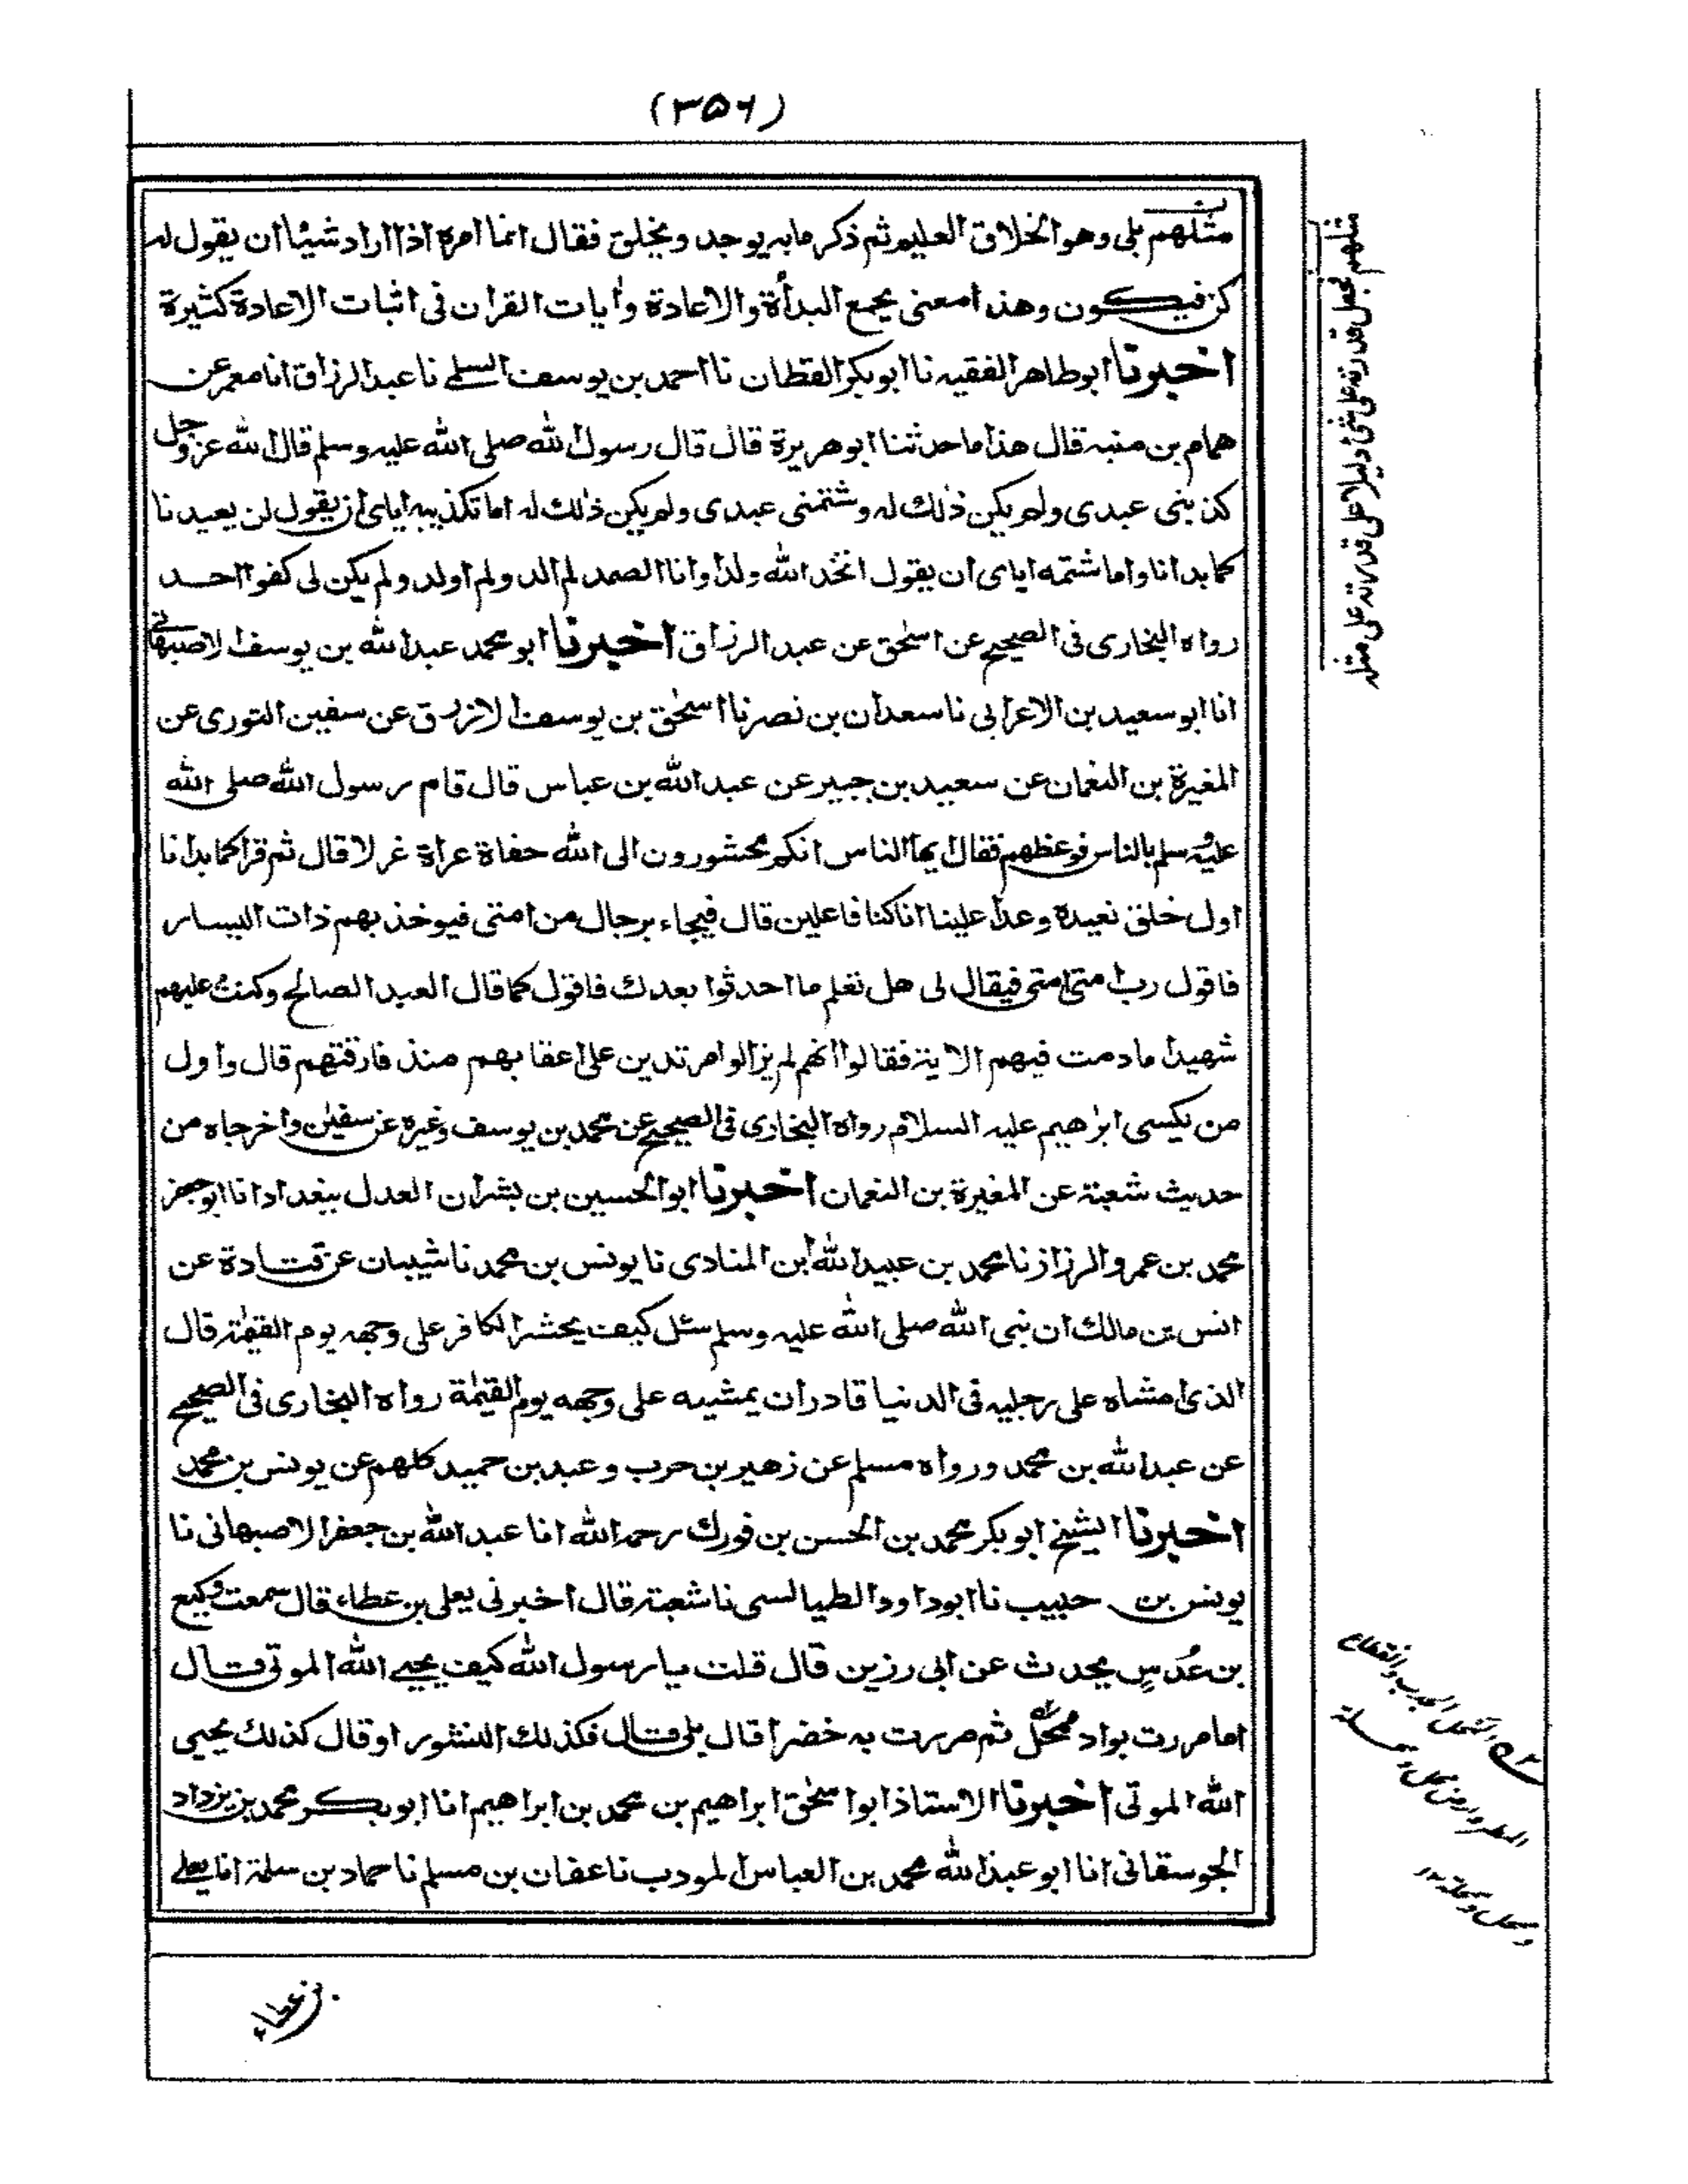 (۳۵۶)
مثلهم بلى وهو الخلاق العليم ثم ذكر ما به يوجد ويخلق فقال انما امره اذا اراد شيئا ان يقول له
كن فيكون وهذا معنى يجمع البدأة والاعادة وأيات القران فى اثبات الاعادة كثيرة
اخبرنا ابو طاهر الفقيه نا ابو بكر القطان نا احمد بن يوسف السلمى نا عبد الرزاق انا معمر عن
همام بن منبه قال هذا ما حدثنا ابو هريرة قال قال رسول الله صلى الله عليه وسلم قال الله عز وجل
كذبنى عبدى ولم يكن ذلك له وشتمنى عبدى ولم يكن ذلك له اما تكذيبه اياى ان يقول لن يعيدنا
كما بدأنا واما شتمه اياى ان يقول اتخذ الله ولدا وانا الصمد لم الد ولم اولد ولم يكن لى كفوا احد
رواه البخارى فى الصحيح عن اسحق عن عبد الرزاق اخبرنا ابو محمد عبد الله بن يوسف الاصبهانى
انا ابو سعيد بن الاعرابى نا سعدان بن نصر نا اسحق بن يوسف الازرق عن سفين الثورى عن
المغيرة بن النعمان عن سعيد بن جبير عن عبد الله بن عباس قال قام رسول الله صلى الله
عليه وسلم بالناس فوعظهم فقال ايها الناس انكم محشورون الى الله حفاة عراة غرلا قال ثم قرأ كما بدأنا
اول خلق نعيده وعدا علينا انا كنا فاعلين قال فيجاء برجال من امتى فيوخذ بهم ذات اليسار
فاقول رب امتى امتى فيقال لى هل تعلم ما احدثوا بعدك فاقول كما قال العبد الصالح وكنت عليهم
شهيدا ما دمت فيهم الاية فقالوا انهم لم يزالوا مرتدين على اعقابهم منذ فارقتهم قال واول
من يكسى ابرهيم عليه السلام رواه البخارى فى الصحيح عن محمد بن يوسف وغيره عن سفين واخرجاه من
حديث شعبة عن المغيرة بن النعمان اخبرنا ابو الحسين بن بشران العدل ببغداد انا ابو جعفر
محمد بن عمرو الرزاز نا محمد بن عبيد الله ابن المنادى نا يونس بن محمد نا شيبان عن قتادة عن
انس بن مالك ان نبى الله صلى الله عليه وسلم سئل كيف يحشر الكافر على وجهه يوم القيمة قال
الذى امشاه على رجليه فى الدنيا قادر ان يمشيه على وجهه يوم القيمة رواه البخارى فى الصحيح
عن عبد الله بن محمد ورواه مسلم عن زهير بن حرب وعبد بن حميد كلهم عن يونس بن محمد
اخبرنا الشيخ ابو بكر محمد بن الحسن بن فورك رحمه الله انا عبد الله بن جعفر الاصبهانى نا
يونس بن حبيب نا ابو داود الطيالسى نا شعبة قال اخبرنى يعلى بن عطاء قال سمعت وكيع
بن عُدُسٍ يحدث عن ابى رزين قال قلت يا رسول الله كيف يحيي الله الموتى قال
اما مررت بواد ممحل ثم مررت به خضرا قال بلى قال فكذلك النشور او قال كذلك يحيى
الله الموتى اخبرنا الاستاذ ابو اسحق ابراهيم بن محمد بن ابراهيم انا ابو بكر محمد بن يزداد
الجوسقانى انا ابو عبد الله محمد بن العباس المودب نا عفان بن مسلم نا حماد بن سلمة انا يعلى
مثلهم فجعل قدرته على شئ دليلا على قدرته على مثله
بن عطاء